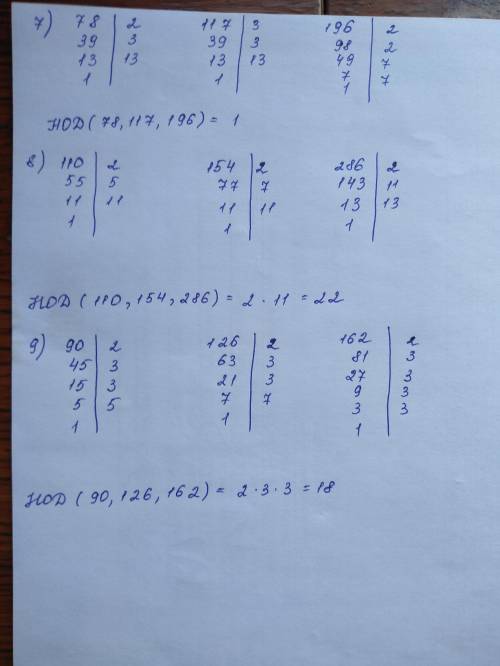 7) 78 | 2 117 | 3 196 | 2
39 | 3 39 | 3 98 | 2
13 | 13 13 | 13 49 | 7
1 | 1 | 7 | 7
1 |
НОД (78, 117, 196) = 1
8) 110 | 2 154 | 2 286 | 2
55 | 5 77 | 7 143 | 11
11 | 11 11 | 11 13 | 13
1 | 1 | 1 |
НОД (110, 154, 286) = 2 · 11 = 22
9) 90 | 2 126 | 2 162 | 2
45 | 3 63 | 3 81 | 3
15 | 3 21 | 3 27 | 3
5 | 5 7 | 7 9 | 3
1 | 1 | 3 | 3
1 |
НОД (90, 126, 162) = 2 · 3 · 3 = 18